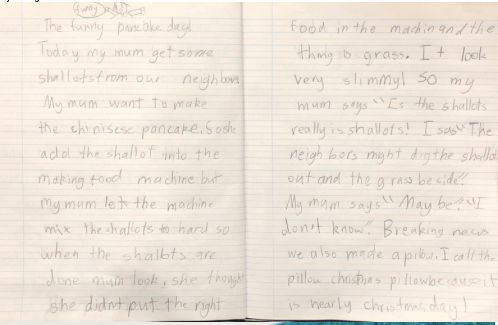 The funny pancake day!
Today my mum get some
shallots from our neighbours
My mum want To make
the chinisese pancake, so she
add the shallot into the
making food machine but
my mum lets the machine
mix the shallots to hard so
when the shallots are
done mum look, she though
she didn't put the right
food in the machin and the
thing is grass. It look
very slimmy! SO my
mum says "Is the shallots
really is shallots! I say" The
neighbors might dig the shallot
out and the grass beside".
My mum says" May be?" "I
don't know". Breaking news
we also made a pillow, I call the
pillow christmas pillow because it
is nearly christmas day!